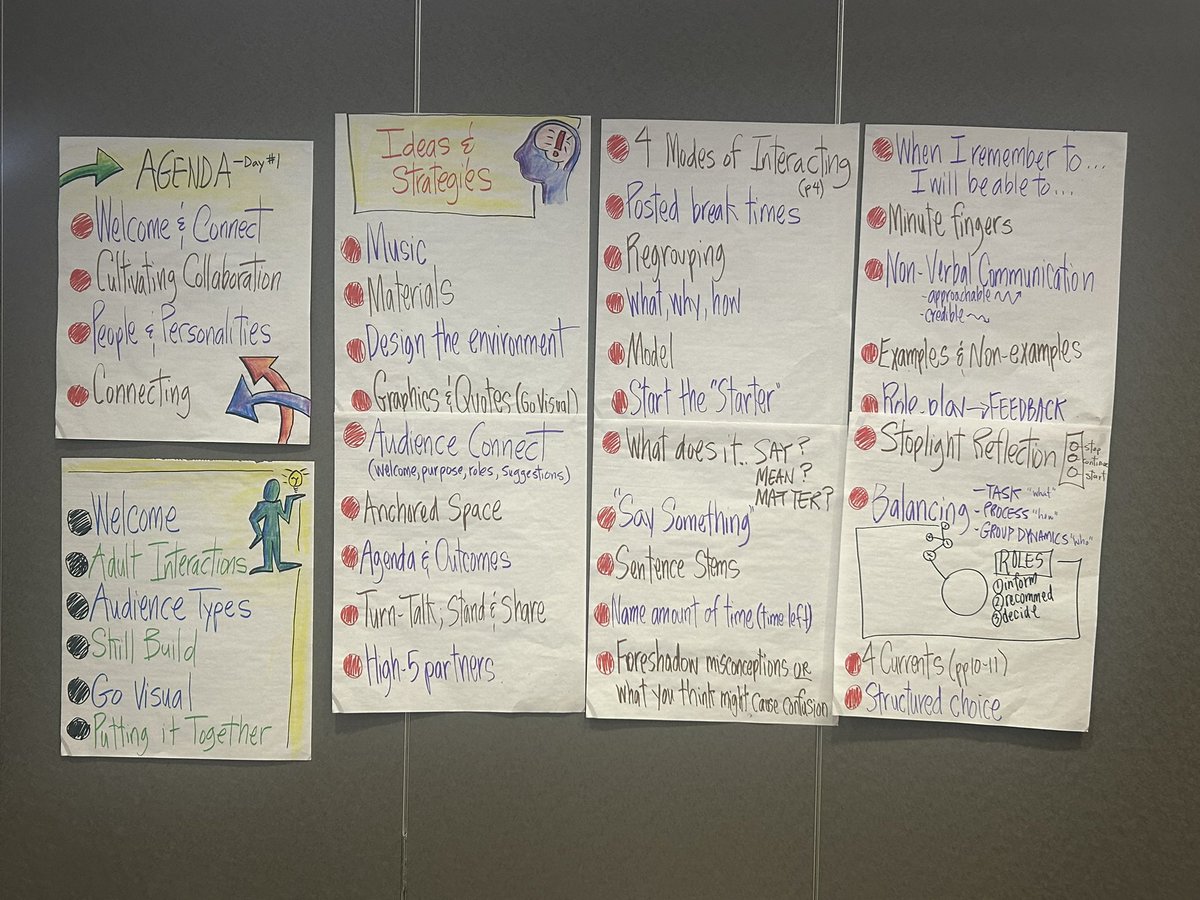 AGENDA - Day #1
Welcome & Connect
Cultivating Collaboration
People & Personalities
Connecting
Welcome
Adult Interactions
Audience Types
Skill Build
Go Visual
Putting it Together
Ideas &
Strategies
Music
Materials
Design the environment
Graphics & Quotes (Go Visual)
Audience Connect
(welcome, purpose, roles, suggestions)
Anchored Space
Agenda & Outcomes
Turn-Talk; Stand & Share
High-5 partners
4 Modes of Interacting
(p4)
Posted break times
Regrouping
What, why, how
Model
Start the "Starter"
What does it... SAY?
MEAN?
MATTER?
"Say Something"
Sentence Stems
Name amount of time (time left)
Foreshadow misconceptions or
what you think might cause confusion
When I remember to...
I will be able to...
Minute fingers
Non-Verbal Communication
- approachable
- credible
Examples & Non-examples
Role-play → FEEDBACK
Stoplight Reflection
stop
continue
start
Balancing - TASK "what"
- PROCESS "how"
- GROUP DYNAMICS "who"
ROLES
① inform
② recommed
③ decide
4 Currents (pp10-11)
Structured choice